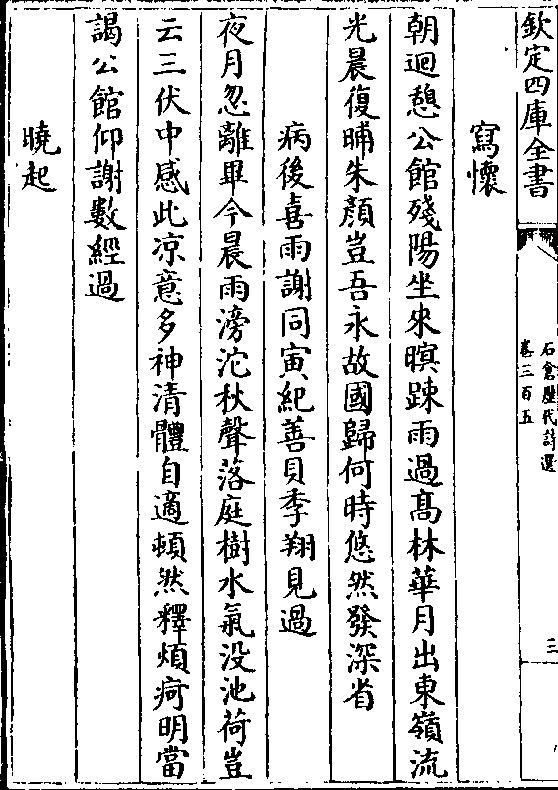 欽定四庫全書
石倉歷代詩選
卷三百五
三
寫懷
朝迴憩公館殘陽坐來暝踈雨過髙林華月出東嶺流
光晨復晡朱顔豈吾永故國歸何時悠然發深省
病後喜雨謝同寅紀善貝季翔見過
夜月忽離畢今晨雨滂沱秋聲落庭樹水氣没池荷豈
云三伏中感此凉意多神清體自適頓然釋煩疴明當
謁公館仰謝數經過
曉起